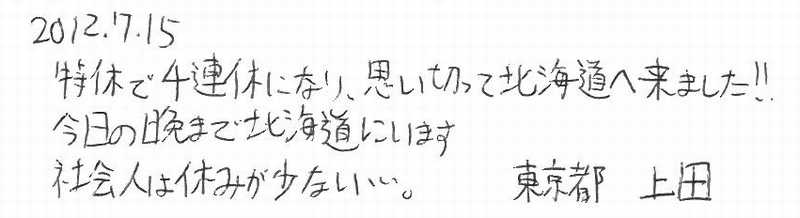 2012.7.15
特休で4連休になり、思い切って北海道へ来ました!!
今日の晩まで北海道にいます
社会人は休みが少ない…。 東京都 上田